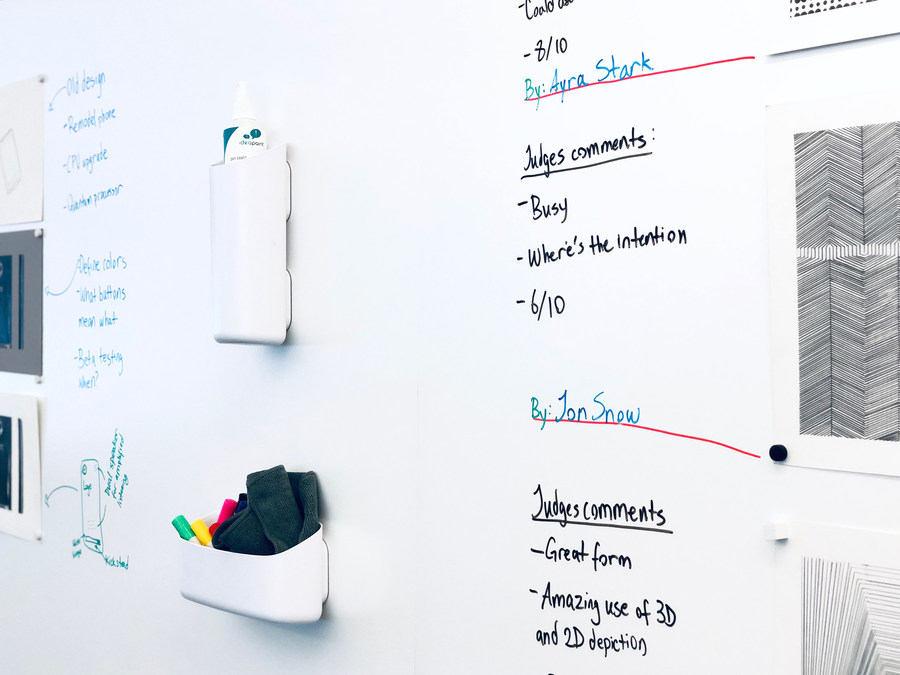 -Old design
-Remodel phone
-CPU upgrade
-Quantum processor
-Define colors
-What buttons
mean what
-Beta testing
when?
Logo
Dual speaker
for amplified
listening
Kickstand
-Could
-8/10
By: Ayra Stark
Judges comments:
-Busy
-Where's the intention
-6/10
By: Jon Snow
Judges comments
-Great form
-Amazing use of 3D
and 2D depiction